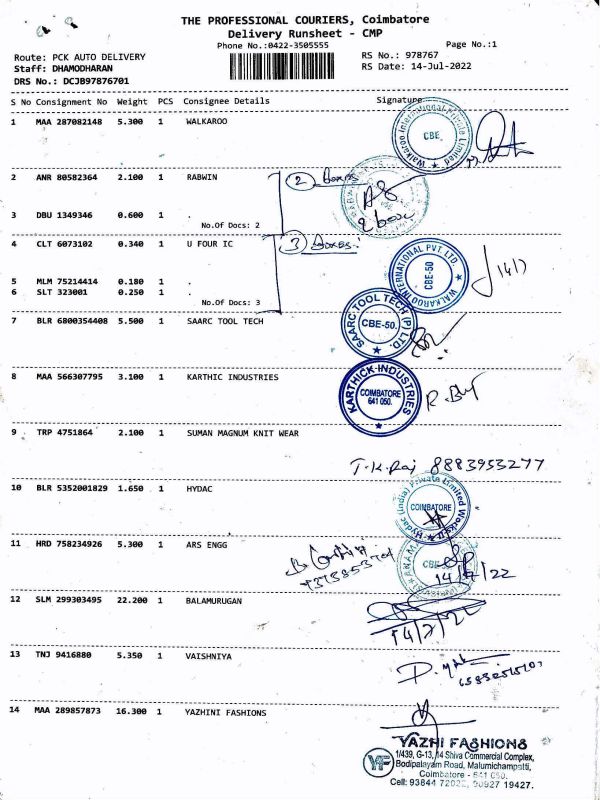 THE PROFESSIONAL COURIERS, Coimbatore
Delivery Runsheet - CMP
Phone No.:0422-3505555
Page No.:1
Route: PCK AUTO DELIVERY
RS No.: 978767
Staff: DHAMODHARAN
RS Date: 14-Jul-2022
DRS No.: DCJB97876701
S No Consignment No Weight PCS Consignee Details Signature
1 MAA 287082148 5.300 1 WALKAROO
Walkaroo International Private Limited
CBE
2 ANR 80582364 2.100 1 RABWIN
2 Boxes
2 box
3 DBU 1349346 0.600 1 .
No.Of Docs: 2
4 CLT 6073102 0.340 1 U FOUR IC
3 Boxes:
WALKAROO INTERNATIONAL PVT. LTD.
CBE-50
5 MLM 75214414 0.180 1 .
6 SLT 323001 0.250 1 .
No.Of Docs: 3
7 BLR 6800354408 5.500 1 SAARC TOOL TECH
SAARC TOOL TECH (P) LTD.
CBE-50.
8 MAA 566307795 3.100 1 KARTHIC INDUSTRIES
KARTHICK INDUSTRIES
COIMBATORE
641 050.
9 TRP 4751864 2.100 1 SUMAN MAGNUM KNIT WEAR
T.K.Raj 8883953277
10 BLR 5352001829 1.650 1 HYDAC
Hydac (India) Private Limited
COIMBATORE
11 HRD 758234926 5.300 1 ARS ENGG
CBE
14/7/22
12 SLM 299303495 22.200 1 BALAMURUGAN
14/7/22
13 TNJ 9416880 5.350 1 VAISHNIYA
14 MAA 289857873 16.300 1 YAZHINI FASHIONS
YAZHI FASHIONS
YF
1/439, G-13, 14 Shiva Commercial Complex,
Bodipalayam Road, Malumichampatti,
Coimbatore - 641 050.
Cell: 93844 72022, 90927 19427.